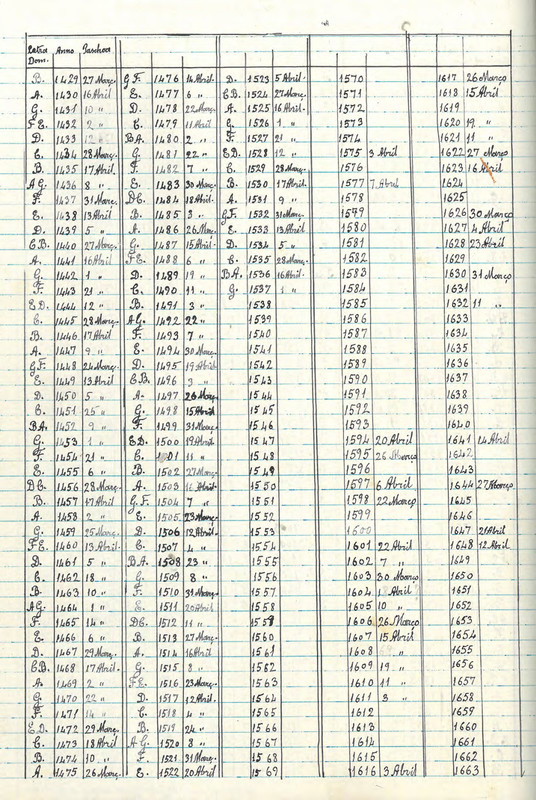 Letra Dom. Anno Paschoa
B. 1429 27 Março G F. 1476 14 Abril D. 1523 5 Abril 1570 1617 26 Março
A. 1430 16 Abril E. 1477 6 " C B. 1524 27 Março 1571 1618 15 Abril
G. 1431 10 " D. 1478 22 Março A. 1525 16 Abril 1572 1619
F E. 1432 2 " C. 1479 11 Abril G. 1526 1 " 1573 1620 19 "
D. 1433 12 B A. 1480 2 " F. 1527 21 " 1574 1621 11 "
C. 1434 28 Março G. 1481 22 " E D. 1528 12 " 1575 3 Abril 1622 27 Março
B. 1435 17 Abril F. 1482 7 " C. 1529 28 Março 1576 1623 16 Abril
A G. 1436 8 " E. 1483 30 Março B. 1530 17 Abril 1577 7 Abril 1624
F. 1437 31 Março D C. 1484 18 Abril A. 1531 9 " 1578 1625
E. 1438 13 Abril B. 1485 3 " G F. 1532 31 Março 1599 1626 30 Março
D. 1439 5 " A. 1486 26 Março E. 1533 13 Abril 1580 1627 4 Abril
C B. 1440 27 Março G. 1487 15 Abril D. 1534 5 " 1581 1628 23 Abril
A. 1441 16 Abril F E. 1488 6 " C. 1535 28 Março 1582 1629
G. 1442 1 " D. 1489 19 " B A. 1536 16 Abril 1583 1630 31 Março
F. 1443 21 " C. 1490 11 " G. 1537 1 " 1584 1631
E D. 1444 12 " B. 1491 3 " 1538 1585 1632 11 "
C. 1445 28 Março A G. 1492 22 " 1539 1586 1633
B. 1446 17 Abril F. 1493 7 " 1540 1587 1634
A. 1447 9 " E. 1494 30 Março 1541 1588 1635
G F. 1448 24 Março D. 1495 19 Abril 1542 1589 1636
E. 1449 13 Abril C B. 1496 3 " 1543 1590 1637
D. 1450 5 " A. 1497 26 Março 1544 1591 1638
C. 1451 25 " G. 1498 15 Abril 1545 1592 1639
B A. 1452 9 " F. 1499 31 Março 1546 1593 1640
G. 1453 1 " E D. 1500 19 Abril 1547 1594 20 Abril 1641 14 Abril
F. 1454 21 " C. 1501 11 " 1548 1595 26 Março 1642
E. 1455 6 " B. 1502 27 Março 1549 1596 1643
D C. 1456 28 Março A. 1503 16 Abril 1550 1597 6 Abril 1644 27 Março
B. 1457 17 Abril G F. 1504 7 " 1551 1598 22 Março 1645
A. 1458 2 " E. 1505 23 Março 1552 1599 1646
G. 1459 25 Março D. 1506 12 Abril 1553 1600 1647 21 Abril
F E. 1460 13 Abril C. 1507 4 " 1554 1601 22 Abril 1648 12 Abril
D. 1461 5 " B A. 1508 23 " 1555 1602 7 " 1649
C. 1462 18 " G. 1509 8 " 1556 1603 30 Março 1650
B. 1463 10 " F. 1510 31 Março 1557 1604 Abril 1651
A G. 1464 1 " E. 1511 20 Abril 1558 1605 10 " 1652
F. 1465 14 " D C. 1512 11 " 1559 1606 26 Março 1653
E. 1466 6 " B. 1513 27 Março 1560 1607 15 Abril 1654
D. 1467 29 Março A. 1514 16 Abril 1561 1608 1655
C B. 1468 17 Abril G. 1515 8 " 1562 1609 19 " 1656
A. 1469 2 " F E. 1516 23 Março 1563 1610 11 " 1657
G. 1470 22 " D. 1517 12 Abril 1564 1611 3 " 1658
F. 1471 14 " C. 1518 4 " 1565 1612 1659
E D. 1472 29 Março B. 1519 24 " 1566 1613 1660
C. 1473 18 Abril A G. 1520 8 " 1567 1614 1661
B. 1474 10 " F. 1521 31 Março 1568 1615 1662
A. 1475 26 Março E. 1522 20 Abril 1569 1616 3 Abril 1663